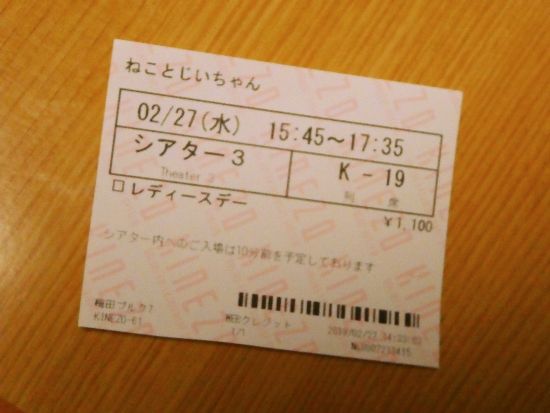 ねことじいちゃん
02/27(水) 15:45～17:35
シアター3 K - 19
Theater 3 列 席
□ レディースデー ¥1,100
シアター内へのご入場は10分前を予定しております
梅田ブルク7 WEBクレジット 2019/02/27 14:03:02
KINEZO-61 1/1